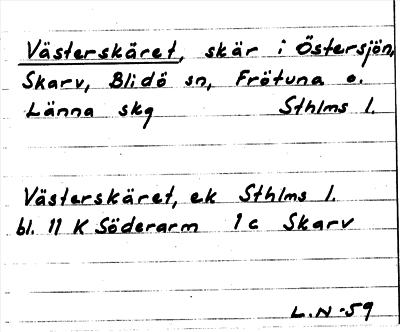 Västerskäret, skär i Östersjön,
Skarv, Blidö sn, Frötuna o.
Länna skg Sthlms l.
Västerskäret, ek Sthlms l.
bl. 11 K Söderarm 1 c Skarv
L.N -59